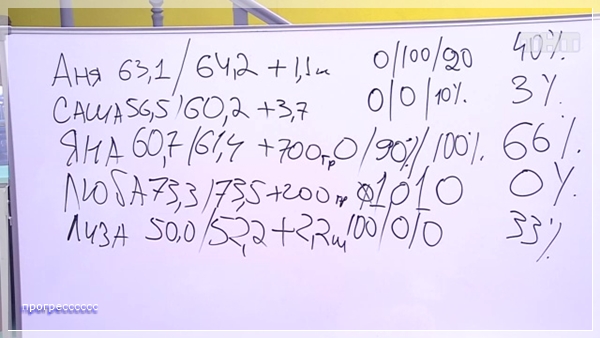 Аня 63,1/64,2 +1,1кг 0/100/20 40%
САША 56,5/60,2 +3,7 0/0/10% 3%
ЯНА 60,7/61,4 +700гр 0/90%/100% 66%
ЛЮБА 73,3/73,5 +200гр 0/0/0 0%
ЛИЗА 50,0/52,2 +2,2кг 100/0/0 33%
прогресссссс